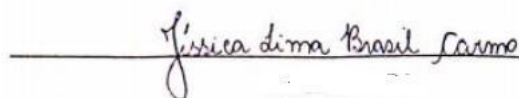 Jéssica Lima Brasil Carmo